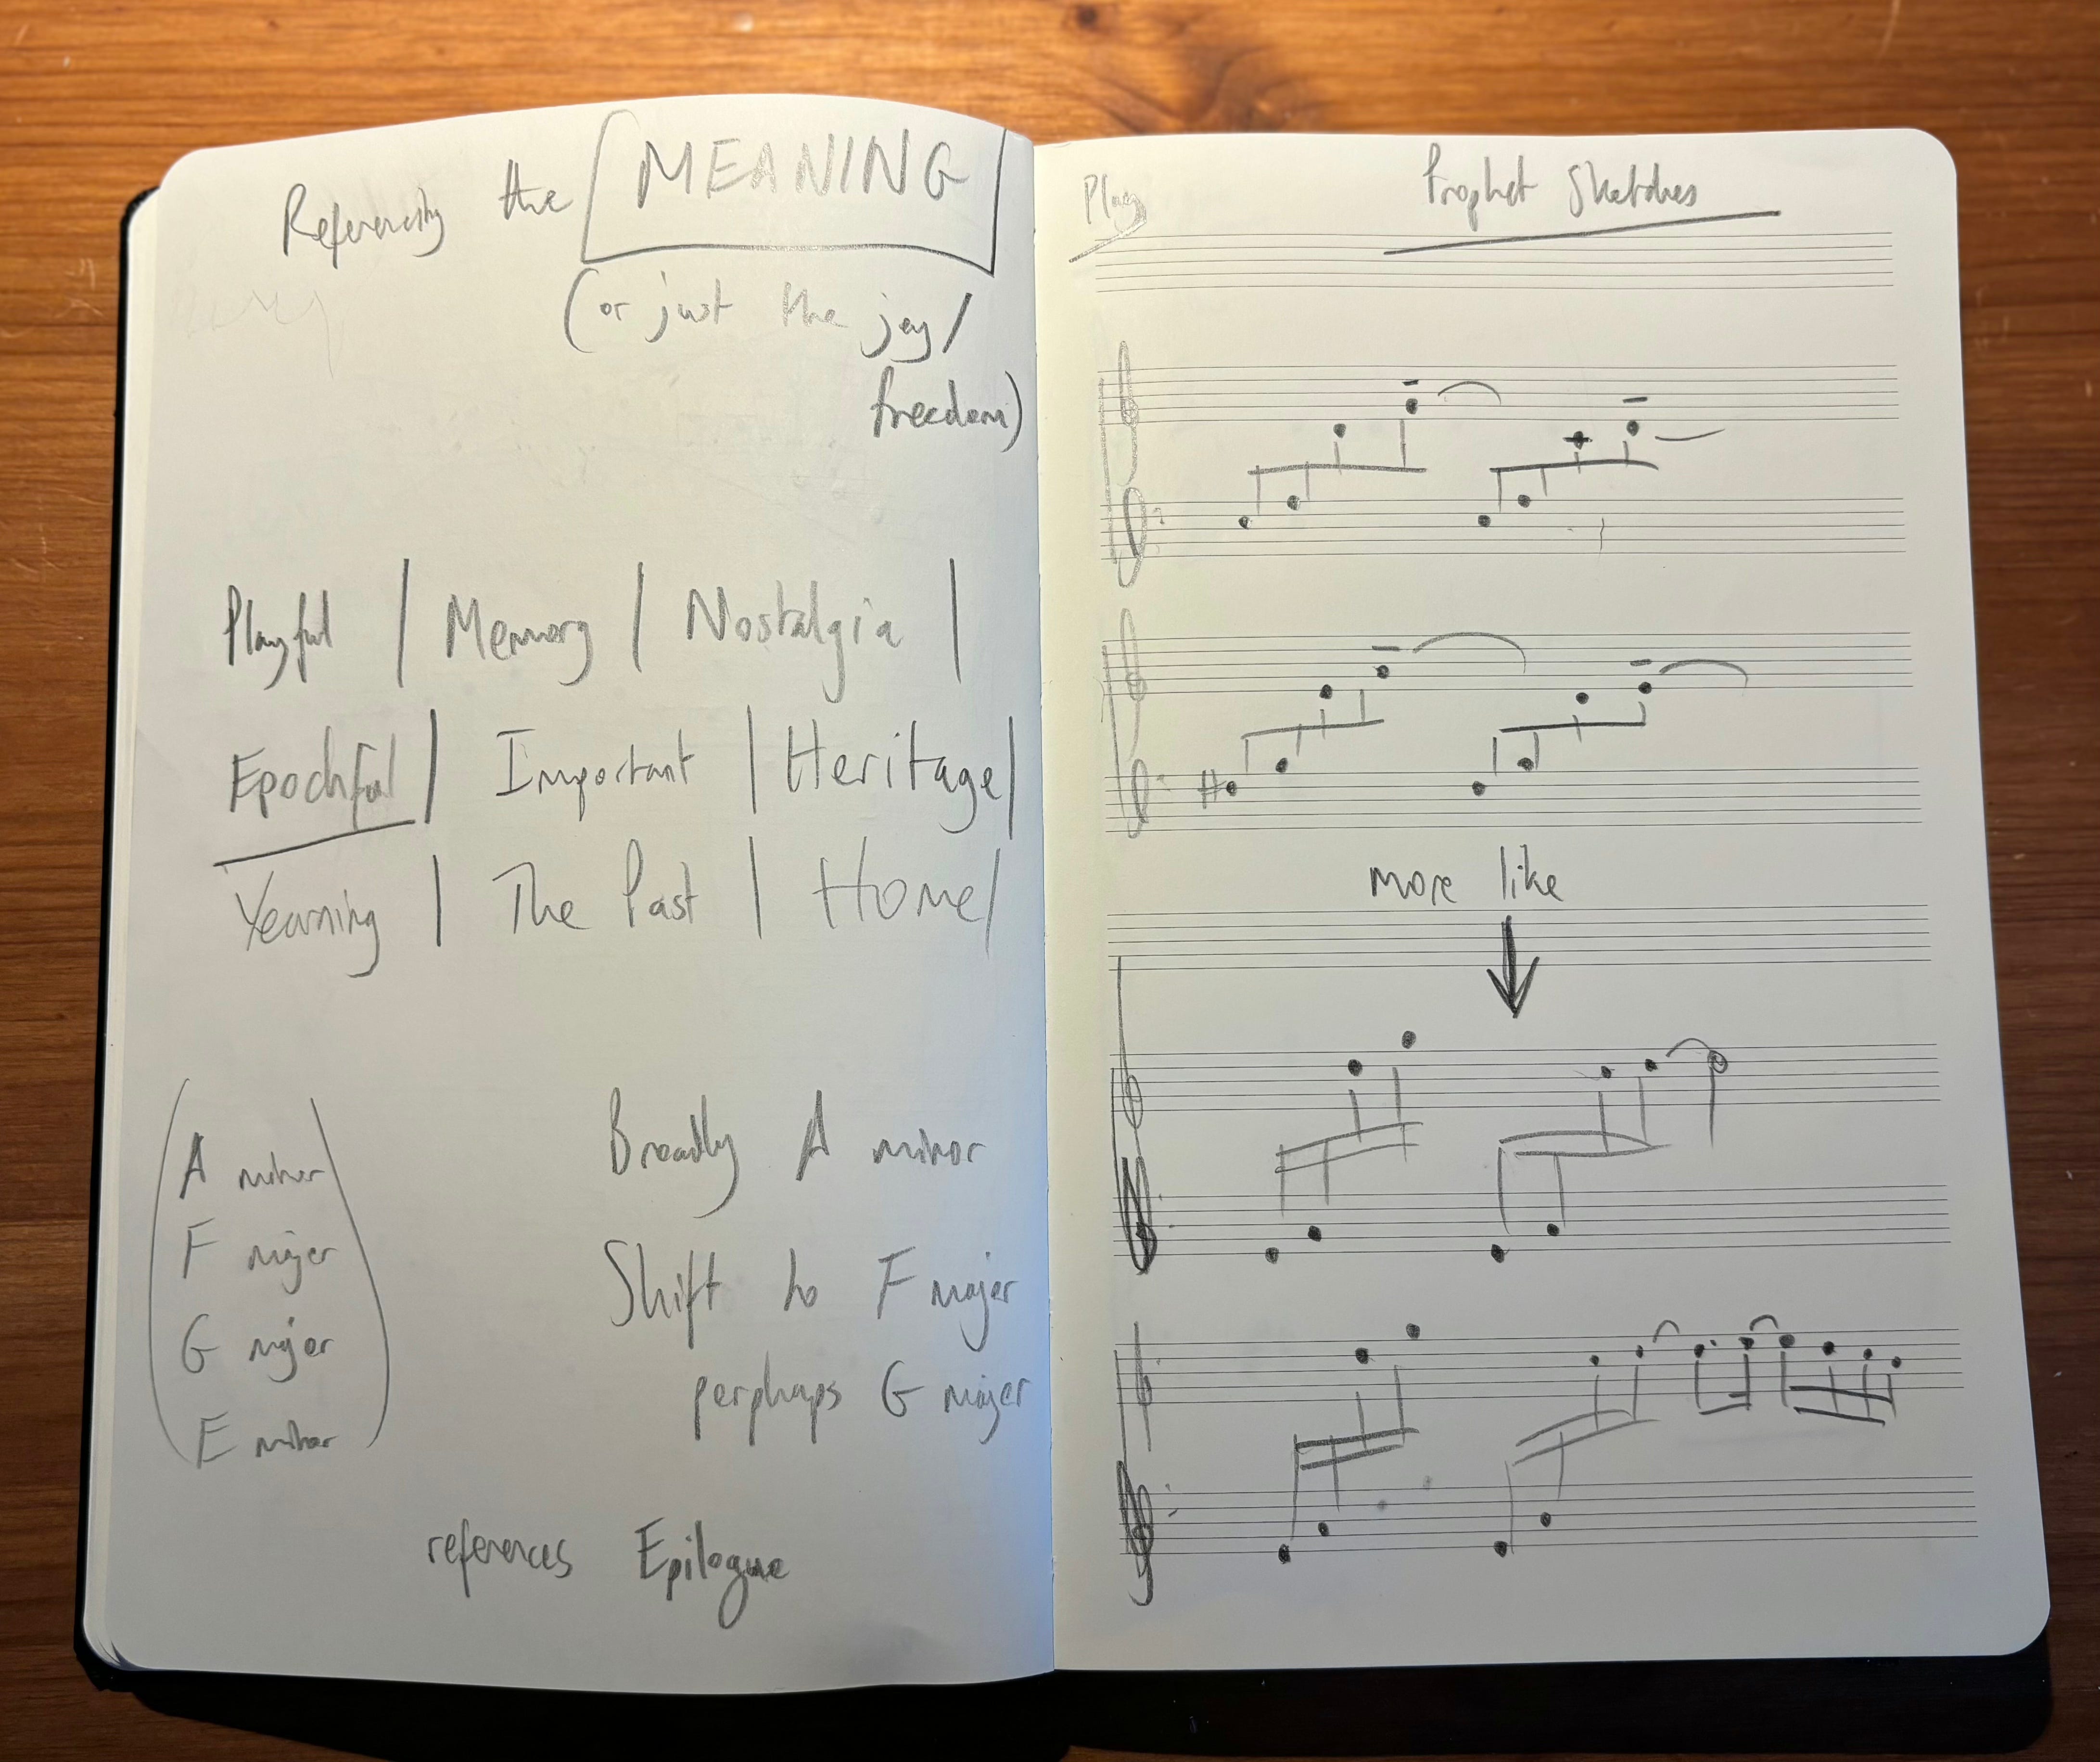 Referencing the MEANING
(or just the joy/
freedom)
Playful | Memory | Nostalgia |
Epochful | Important | Heritage |
Yearning | The Past | Home |
A minor
F major
G major
E minor
Broadly A minor
Shift to F major
perphaps G major
references Epilogue
Play
Prophet Sketches
more like